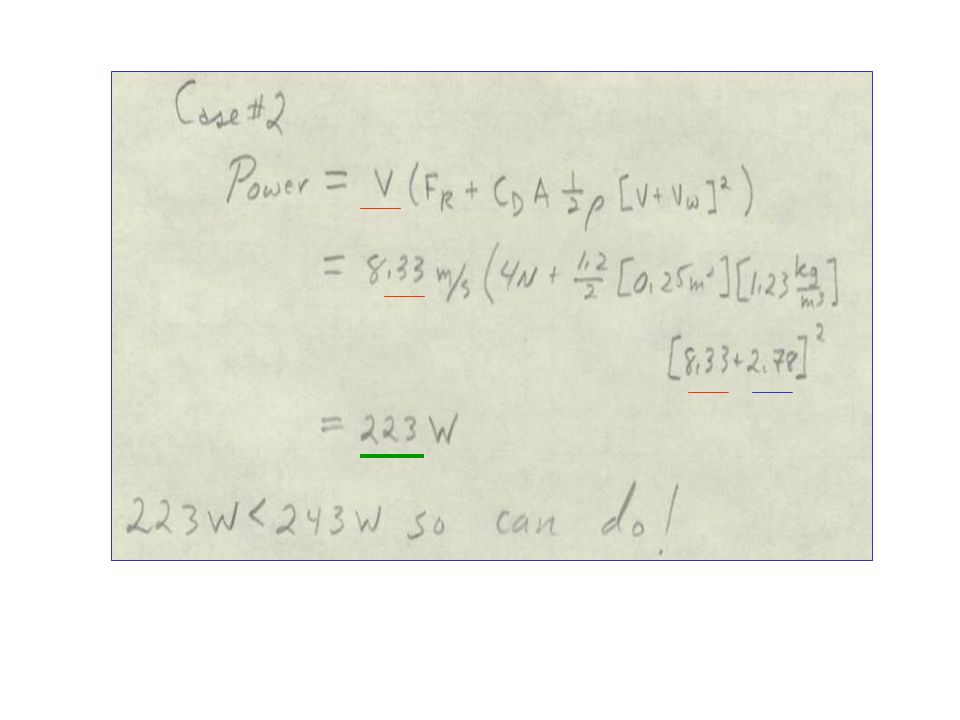 Case #2
Power = V (F_R + C_D A 1/2 ρ [V + V_w]²)
= 8.33 m/s (4N + 1.2/2 [0.25m²][1.23 kg/m³]
[8.33+2.78]²
= 223 W
223W < 243W so can do!